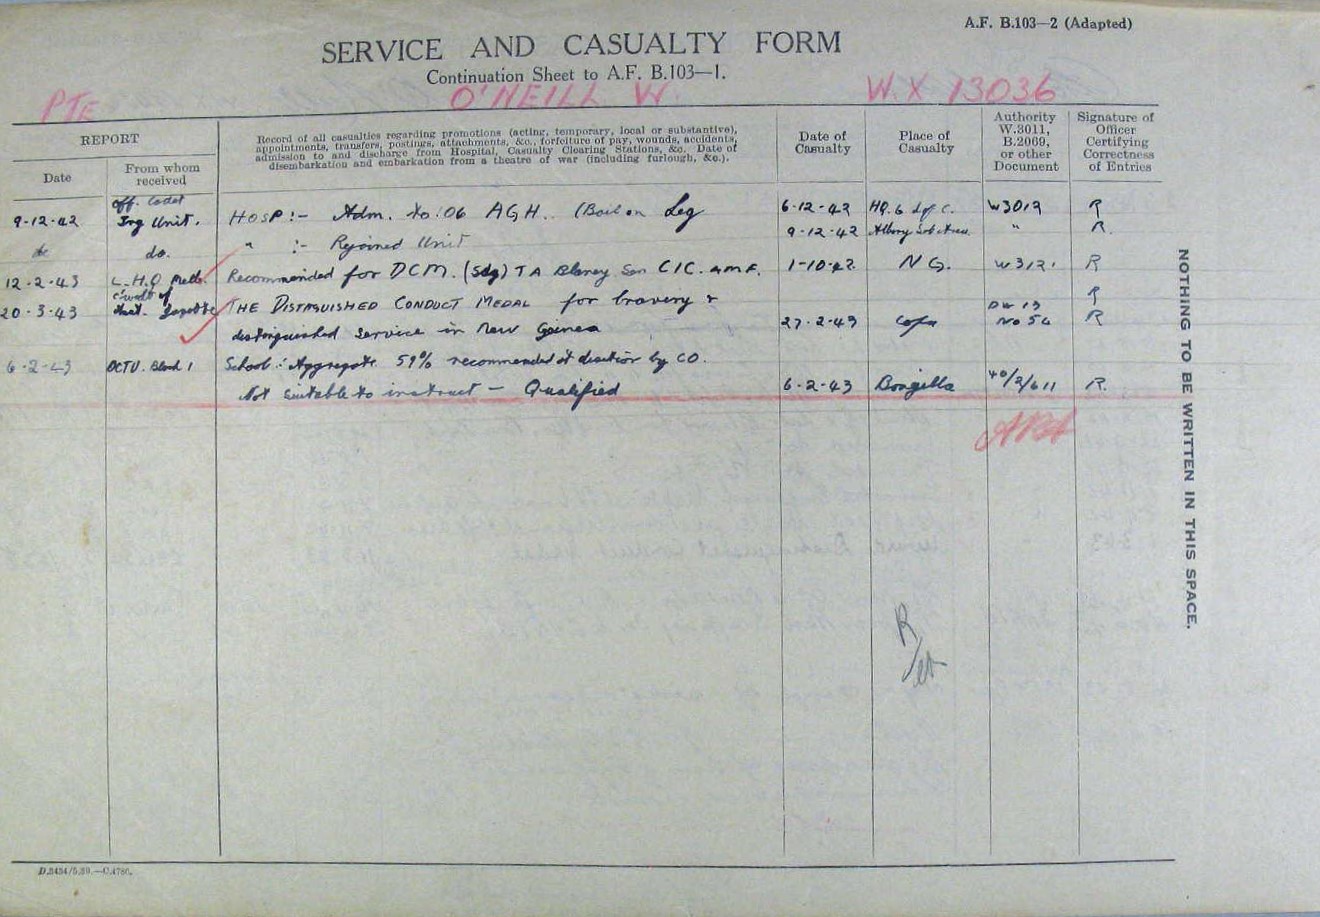 A.F. B.103—2 (Adapted)
SERVICE AND CASUALTY FORM
Continuation Sheet to A.F. B.103—I.
PTE O'NEILL W. W.X 13036
REPORT
Date
From whom received
Record of all casualties regarding promotions (acting, temporary, local or substantive),
appointments, transfers, postings, attachments, &c., forfeiture of pay, wounds, accidents,
admission to and discharge from Hospital, Casualty Clearing Stations, &c. Date of
disembarkation and embarkation from a theatre of war (including furlough, &c.).
Date of Casualty
Place of Casualty
Authority W.3011, B.2069, or other Document
Signature of Officer Certifying Correctness of Entries
Off. Cadet
9-12-42 Trg Unit. HOSP :- Adm. to 106 AGH. (Boil on Leg 6-12-42 HQ. 6 L of C. W3012 R
do do. " :- Rejoined Unit 9-12-42 Albury Sub Area. " R.
12-2-43 L.H.Q Melb. Recommended for DCM. (Sdg) T A Blamey Gen C I C. A.M.F. 1-10-42. N G. W3121 R
C'wealth of
20-3-43 Aust. Gazette THE DISTINGUISHED CONDUCT MEDAL for bravery & R
distinguished service in New Guinea 27-2-43 No 56 R
6-2-43 OCTU. School :- Aggregate 59% recommended at discretion by CO.
Not suitable to instruct — Qualified 6-2-43 Bonegilla 40/2/611 R.
R
NOTHING TO BE WRITTEN IN THIS SPACE.
D.3434/5.39.—C.4780.